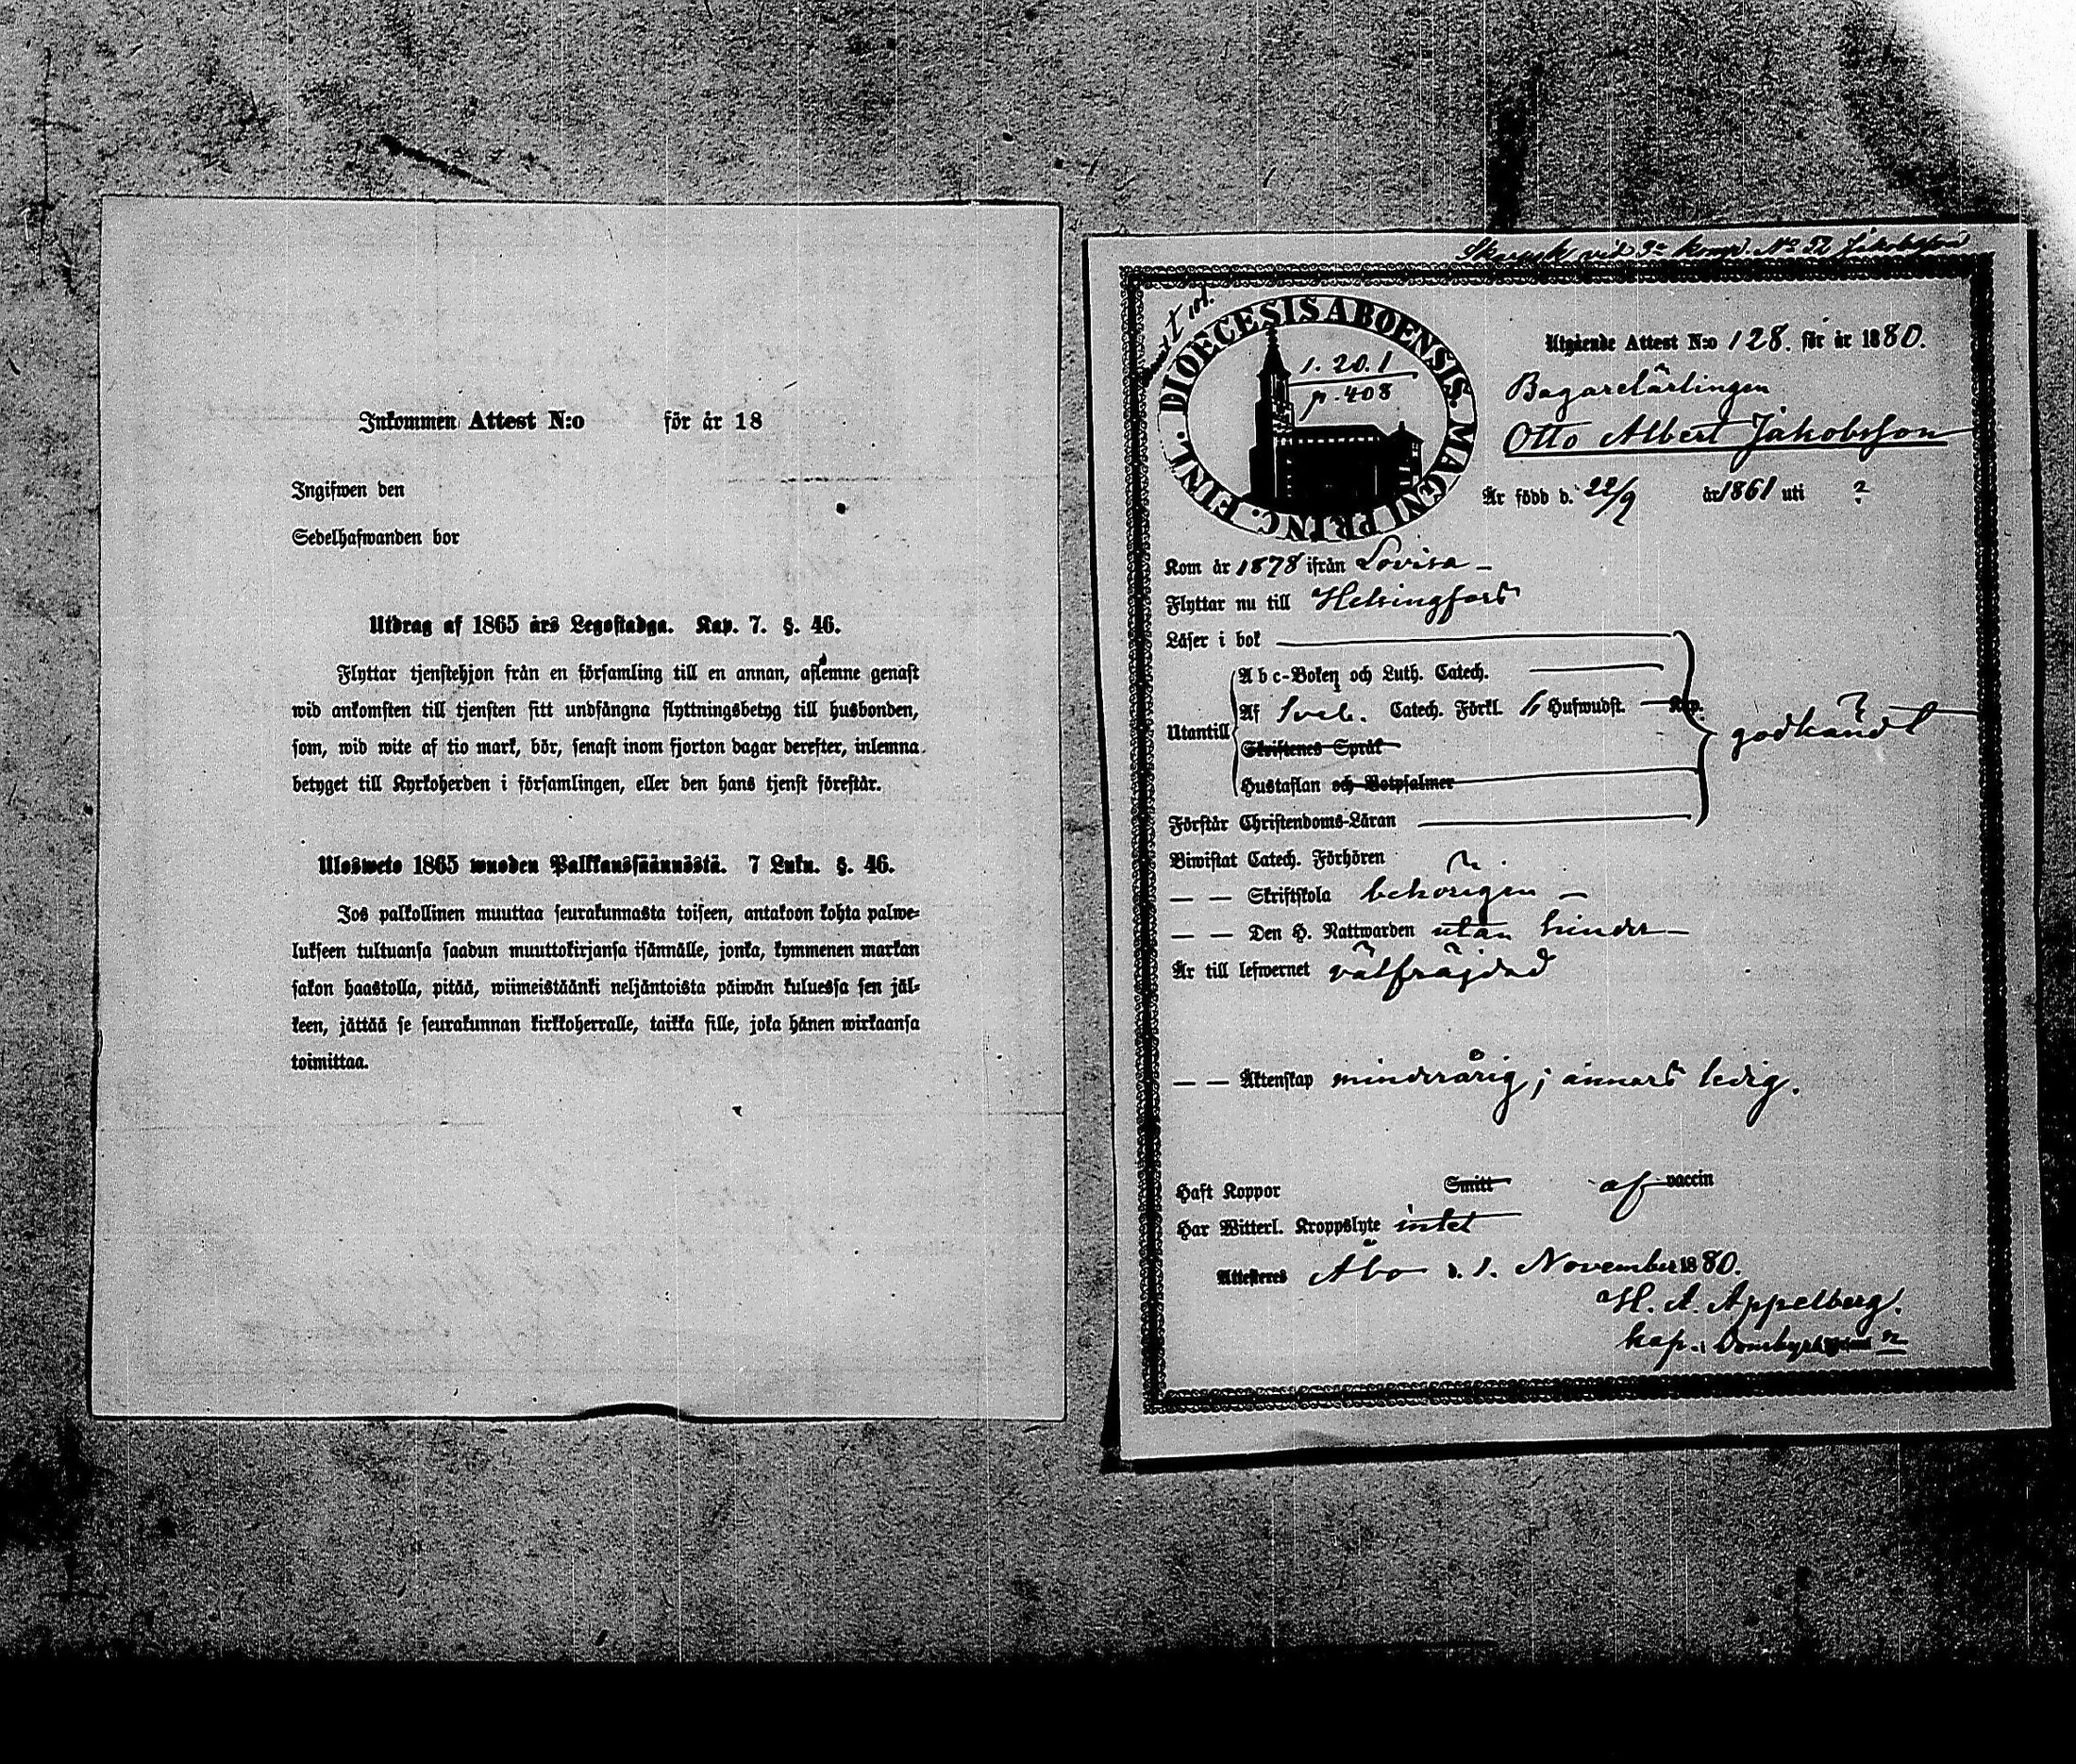 Inkommen Attest N:o för år 18
Ingifwen den
Sedelhafwanden bor
Utdrag af 1865 års Legostadga. Kap. 7. §. 46.
Flyttar tjenstehjon från en församling till en annan, aflemne genast
wid ankomsten till tjensten sitt undfångna flyttningsbetyg till husbonden,
som, wid wite af tio mark, bör, senast inom fjorton dagar derefter, inlemna
betyget till Kyrkoherden i församlingen, eller den hans tjenst förestår.
Ulosweto 1865 wuoden Palkkaussäännöstä. 7 Luku. §. 46.
Jos palkollinen muuttaa seurakunnasta toiseen, antakoon kohta palwe-
lukseen tultuansa saadun muuttokirjansa isännälle, jonka, kymmenen markan
sakon haastolla, pitää, wiimeistäänki neljäntoista päiwän kuluessa sen jäl-
keen, jättää se seurakunnan kirkkoherralle, taikka sille, joka hänen wirkaansa
toimittaa.
wid 3e komp. No 52 Jakobsson
DIOECESIS ABOENSIS. MAGNI PRINC. FINL.
1. 20. 1
p. 408
Utgående Attest N:o 128. för år 1880.
Bagarelärlingen
Otto Albert Jakobsson
Är född d. 22/9 år 1861 uti ?
Kom år 1878 ifrån Lovisa –
Flyttar nu till Helsingfors
Läser i bok
Utantill
Abc-Boken och Luth. Catech.
Af Sveb. Catech. Förkl. 6 Hufwudst. Kap.
Skriftenes Språk
Hustaflan och Botpsalmer
godkändt
Förstår Christendoms-Läran
Biwistat Catech. Förhören
— — Skriftskola behörigen –
— — Den H. Nattwarden utan hinder –
Är till lefwernet välfräjdad
— — Äktenskap minderårig; annars ledig.
Haft Koppor Smitt af vaccin
Har Witterl. Kroppslyte intet
Attesteras Åbo d. 1. November 1880.
H. A. Appelberg.
kap. i